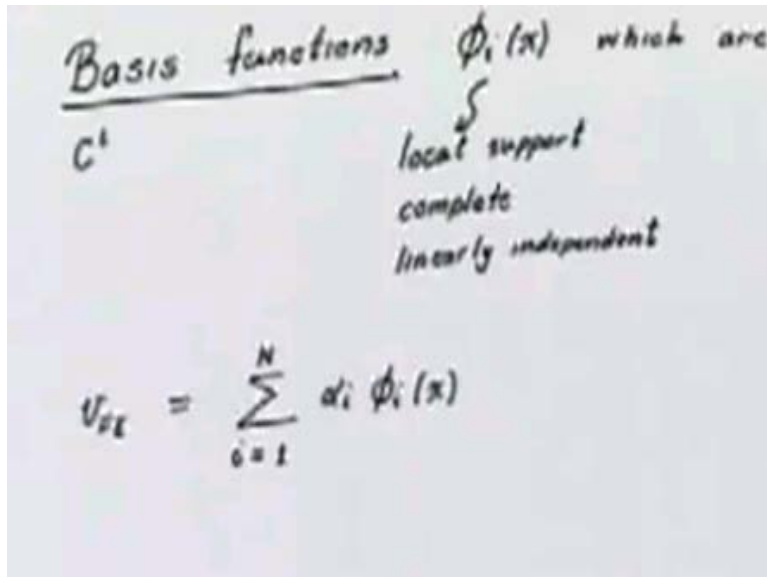 Basis functions ϕᵢ(x) which are
C¹
local support
complete
linearly independent
N
v_FE = Σ αᵢ ϕᵢ(x)
i = 1